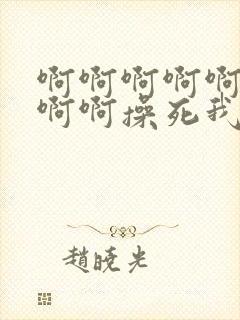 啊啊啊啊啊
啊啊操死我
趙曉光